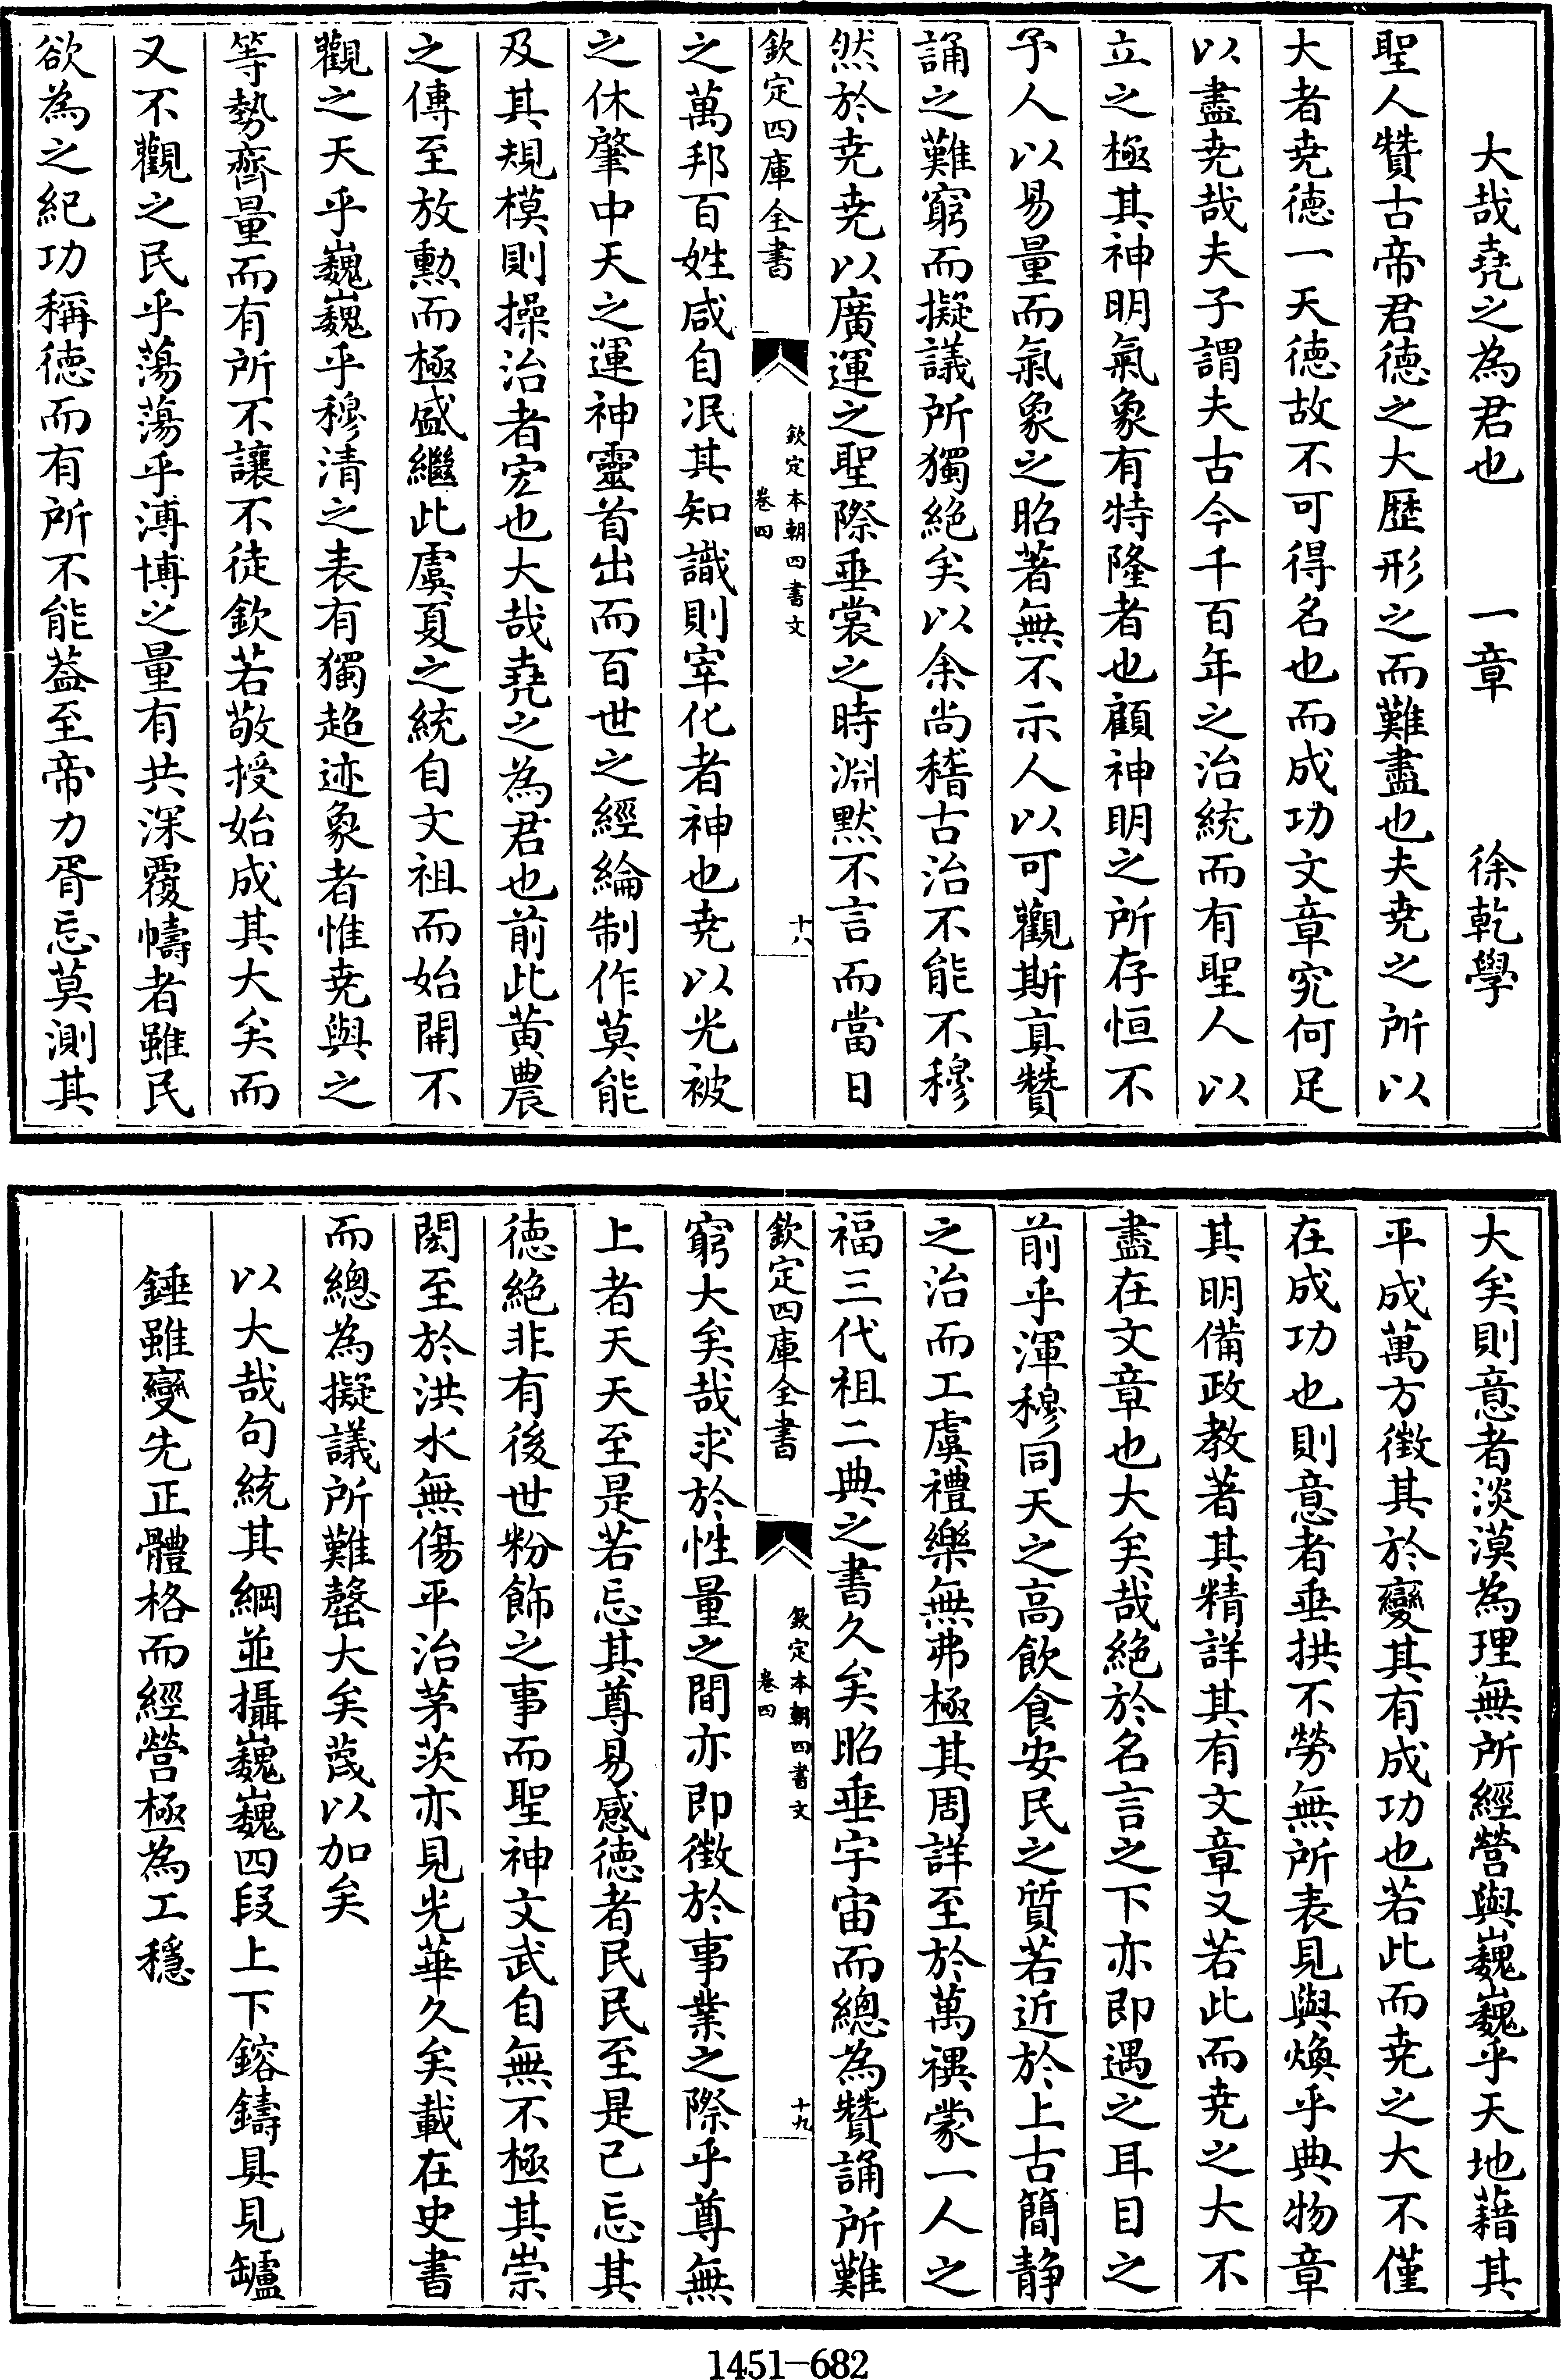 大哉堯之為君也　一章　徐乾學
聖人贊古帝君徳之大歴形之而難盡也夫尭之所以
大者尭徳一天徳故不可得名也而成功文章究何足
以盡尭哉夫子謂夫古今千百年之治統而有聖人以
立之極其神明氣象有特隆者也顧神明之所存恒不
予人以易量而氣象之昭著無不示人以可觀斯真贊
誦之難窮而擬議所獨絶矣以余尚稽古治不能不穆
然於尭尭以廣運之聖際垂裳之時淵黙不言而當日
欽定四庫全書
欽定本朝四書文
卷四
十八
之萬邦百姓咸自泯其知識則宰化者神也尭以光被
之休肇中天之運神靈首出而百世之經綸制作莫能
及其規模則操治者宏也大哉堯之為君也前此黄農
之傳至放勲而極盛繼此虞夏之統自文祖而始開不
觀之天乎巍巍乎穆清之表有獨超迹象者惟尭與之
等勢齊量而有所不讓不徒欽若敬授始成其大矣而
又不觀之民乎蕩蕩乎溥博之量有共深覆幬者雖民
欲為之紀功稱徳而有所不能葢至帝力胥忘莫測其
大矣則意者淡漠為理無所經營與巍巍乎天地藉其
平成萬方徴其於變其有成功也若此而尭之大不僅
在成功也則意者垂拱不勞無所表見與煥乎典物章
其明備政教著其精詳其有文章又若此而尭之大不
盡在文章也大矣哉絶於名言之下亦即遇之耳目之
前乎渾穆同天之高飲食安民之質若近於上古簡静
之治而工虞禮樂無弗極其周詳至於萬禩蒙一人之
福三代祖二典之書久矣昭垂宇宙而總為贊誦所難
欽定四庫全書
欽定本朝四書文
卷四
十九
窮大矣哉求於性量之間亦即徴於事業之際乎尊無
上者天天至是若忘其尊易感徳者民民至是已忘其
徳絶非有後世粉飾之事而聖神文武自無不極其崇
閎至於洪水無傷平治茅茨亦見光華久矣載在史書
而總為擬議所難罄大矣蔑以加矣
以大哉句統其綱並攝巍巍四段上下鎔鑄具見鑪
錘雖變先正體格而經營極為工穩
1451-682